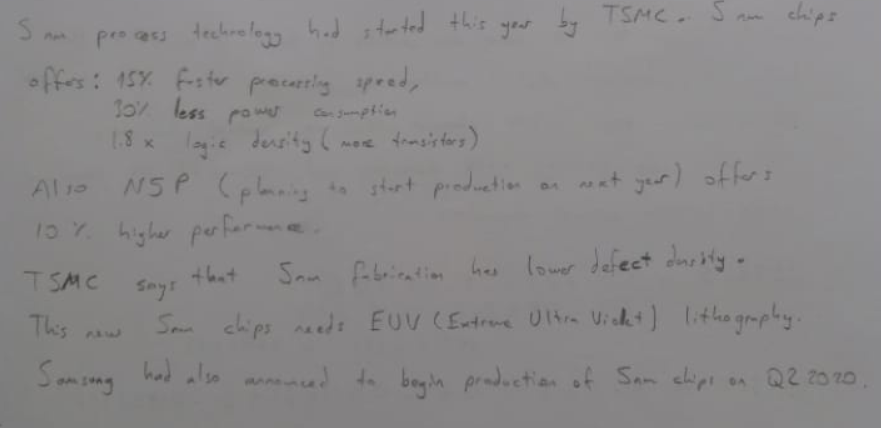 5 nm process technology had started this year by TSMC. 5 nm chips
offers: 15% faster processing speed,
30% less power consumption
1.8 x logic density (more transistors)
Also N5P (planning to start production on next year) offers
10 % higher performance.
TSMC says that 5nm fabrication has lower defect density.
This new 5nm chips needs EUV (Extreme Ultra Violet) lithography.
Samsung had also announced to begin production of 5nm chips on Q2 2020.